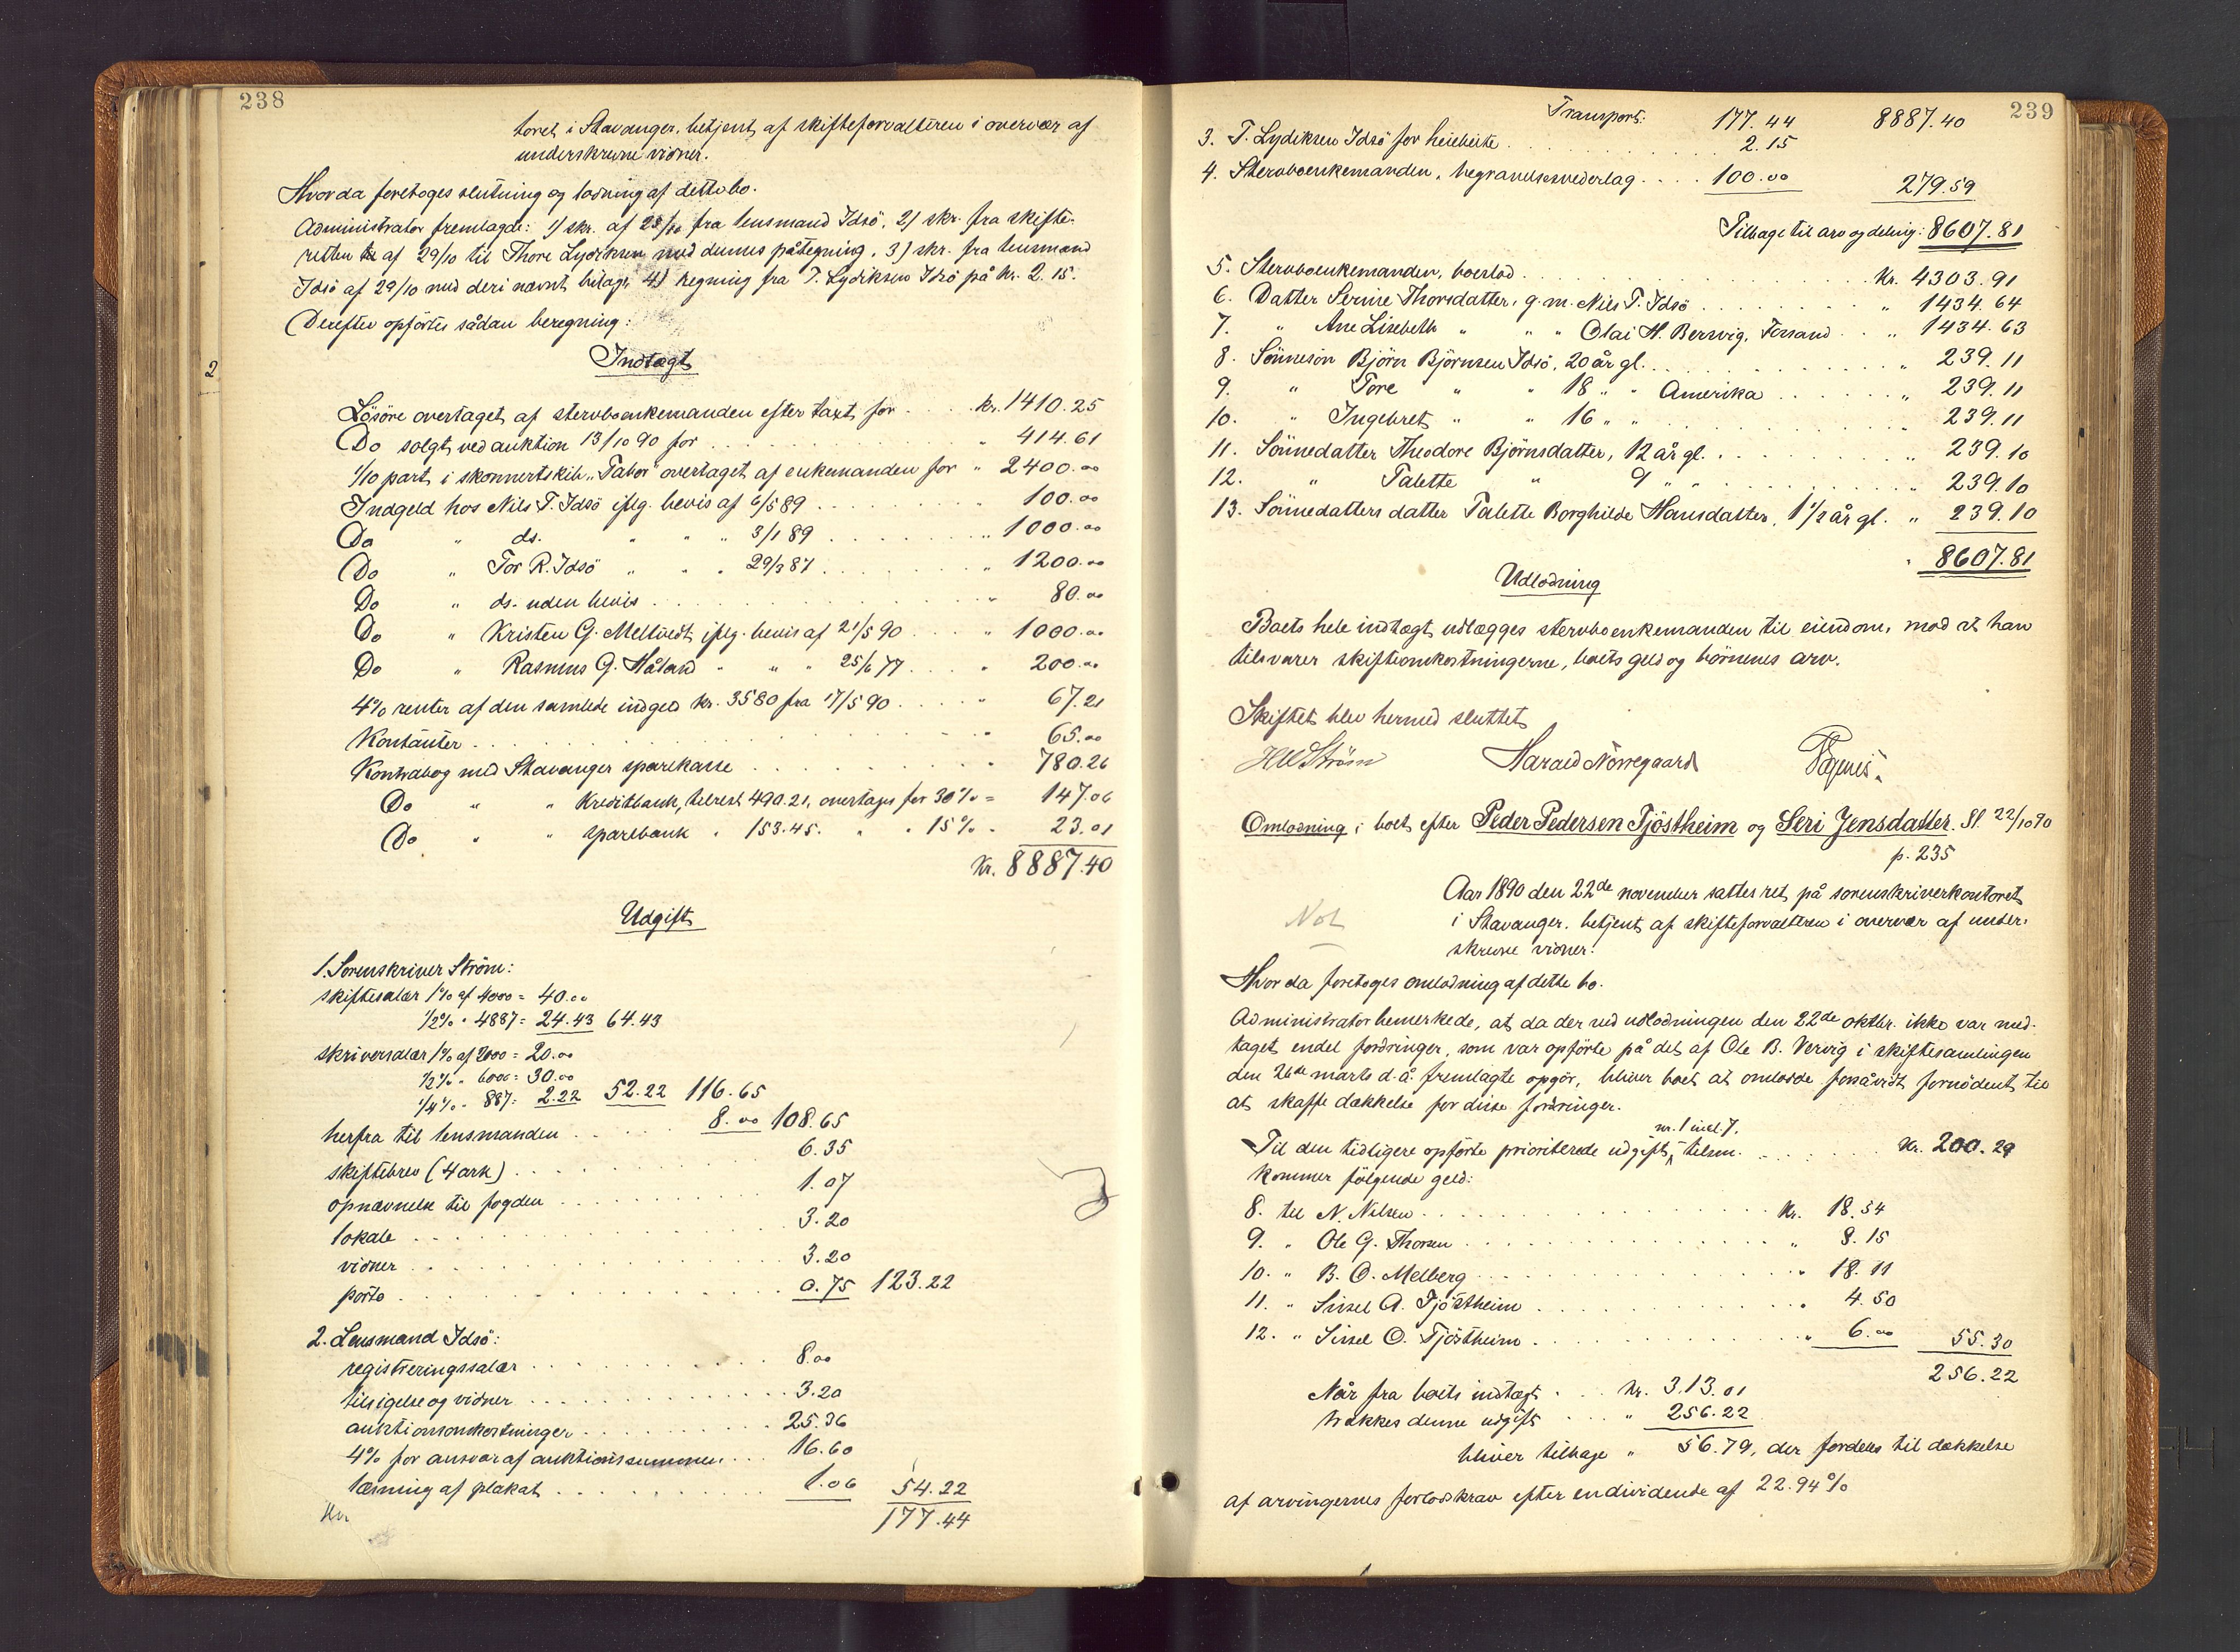 238
toret i Stavanger, betjent af skifteforvalteren i overvær af
underskrevne vidner.
Hvorda foretoges slutning og lodning af dette bo.
Administrator fremlagde: 1) skr. af 28/10 fra lensmand Idsö, 2) skr. fra skifte-
retten af 29/10 til Thore Lydiksen med dennes påtegning, 3) skr. fra lensmand
Idsö af 29/10 med deri nævnt bilag, 4) Regning fra T. Lydiksen Idsö på kr. 2.15.
Derefter opförtes sådan beregning:
Indtægt
2
Lösöre overtaget af stervboenkemanden efter taxt for . . . kr. 1410.25
Do solgt ved auktion 13/10 90 for . . . " 414.61
1/10 part i skonnertskib "Tabor" overtaget af enkemanden for " 2400.00
Indgeld hos Nils T. Idsö iflg. bevis af 6/5 89 . . . " 100.00
Do " ds. " " " 3/1 89 . . . " 1000.00
Do " Tor R. Idsö " " " 29/3 87 . . . " 1200.00
Do " ds. uden bevis . . . " 80.00
Do " Kristen G. Meltvedt iflg. bevis af 21/5 90 . . . " 1000.00
Do " Rasmus G. Håland " " " 25/6 77 . . . " 200.00
4% renter af den samlede indgeld kr. 3580 fra 17/5 90 . . . " 67.21
Kontanter . . . " 65.00
Kontrabog med Stavanger sparekasse . . . " 780.26
Do " " Kreditbank, tilrest 490.21, overtages for 30% = 147.06
Do " " sparebank " 153.45. " " 15% " 23.01
Kr. 8887.40
Udgift
1. Sorenskriver Ström:
skiftesalær 1% af 4000 = 40.00
1/2% " 4887 = 24.43 64.43
skriversalær 1% af 2000 = 20.00
1/2% " 6000 = 30.00
1/4% " 887 = 2.22 52.22 116.65
herfra til lensmanden . . . 8.00 108.65
skiftebrev (4 ark) . . . 6.35
opnævnelse til fogden . . . 1.07
lokale . . . 3.20
vidner . . . 3.20
porto . . . 0.75 123.22
2. Lensmand Idsö:
registreringssalær . . . 8.00
tilsigelse og vidner . . . 3.20
auktionsomkostninger . . . 25.36
4% for ansvar af auktionssummen . . . 16.60
læsning af plakat . . . 1.06 54.22
177.44
239
Transport: 177.44 8887.40
3. T. Lydiksen Idsö for heiebeite . . . 2.15
4. Stervboenkemanden, begravelsesvederlag . . . 100.00 279.59
Tilbage til arv og deling: 8607.81
5. Stervboenkemanden, boeslod . . . Kr. 4303.91
6. Datter Serine Thorsdatter, g. m. Nils T. Idsö . . . " 1434.64
7. " Ane Lisebeth " " " Olai H. Bersvig, Forsand . . . " 1434.63
8. Sönnesön Björn Björnsen Idsö, 20 år gl. . . . " 239.11
9. " Tore " " 18 " " Amerika . . . " 239.11
10. " Ingebret " " 16 " " . . . " 239.11
11. Sönnedatter Theodore Björnsdatter, 12 år gl. . . . " 239.10
12. " Talette " 9 " " . . . " 239.10
13. Sönnedatters datter Talette Borghilde Hansdatter, 1 1/2 år gl. " 239.10
" 8607.81
Udlodning
Boets hele indtægt udlægges stervboenkemanden til eiendom, mod at han
tilsvarer skifteomkostningerne, boets geld og börnenes arv.
Skiftet blev hermed sluttet
HM Ström Harald Norregaard
Omlodning i boet efter Peder Pedersen Tjöstheim og Seri Jensdatter. Sl. 22/10 90
p. 235
Not
Aar 1890 den 22de november sattes ret på sorenskriverkontoret
i Stavanger, betjent af skifteforvalteren i overvær af under-
skrevne vidner:
Hvor da foretoges omlodning af dette bo.
Administrator bemerkede, at da der ved udlodningen den 22de oktbr. ikke var med-
taget endel fordringer, som var opförte på det af Ole B. Versvig i skiftesamlingen
den 26de marts d. å. fremlagte opgör, bliver boet at omlodde forsåvidt fornödent til
at skaffe dækkelse for disse fordringer.
nr. 1 incl. 7.
Til den tidligere opförte prioriterede udgift, tilsm. . . . Kr. 200.29
kommer fölgende geld:
8. til N. Nilsen . . . Kr. 18.54
9. " Ole G. Thorsen . . . " 8.15
10. " B. O. Melberg . . . " 18.11
11. " Sissel A. Tjöstheim . . . " 4.50
12. " Sissel O. Tjöstheim . . . " 6.00 55.30
256.22
Når fra boets indtægt . . . kr. 313.01
trækkes denne udgift . . . " 256.22
bliver tilbage " 56.79, der fordeles til dækkelse
af arvingernes forlodskrav efter en dividende af 22.94%